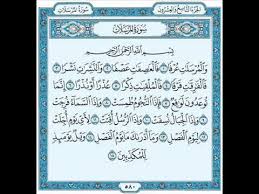 الجزء التاسع والعشرون
سورة المرسلات
سورة المرسلات
بسم الله الرحمن الرحيم
والمرسلات عرفا ١ فالعاصفات عصفا ٢ والناشرات نشرا ٣
فالفارقات فرقا ٤ فالملقيات ذكرا ٥ عذرا أو نذرا ٦ إنما
توعدون لواقع ٧ فإذا النجوم طمست ٨ وإذا السماء
فرجت ٩ وإذا الجبال نسفت ١٠ وإذا الرسل أقتت ١١ لأي يوم أجلت
١٢ ليوم الفصل ١٣ وما أدراك ما يوم الفصل ١٤ ويل يومئذ
للمكذبين ١٥
٥٨٠